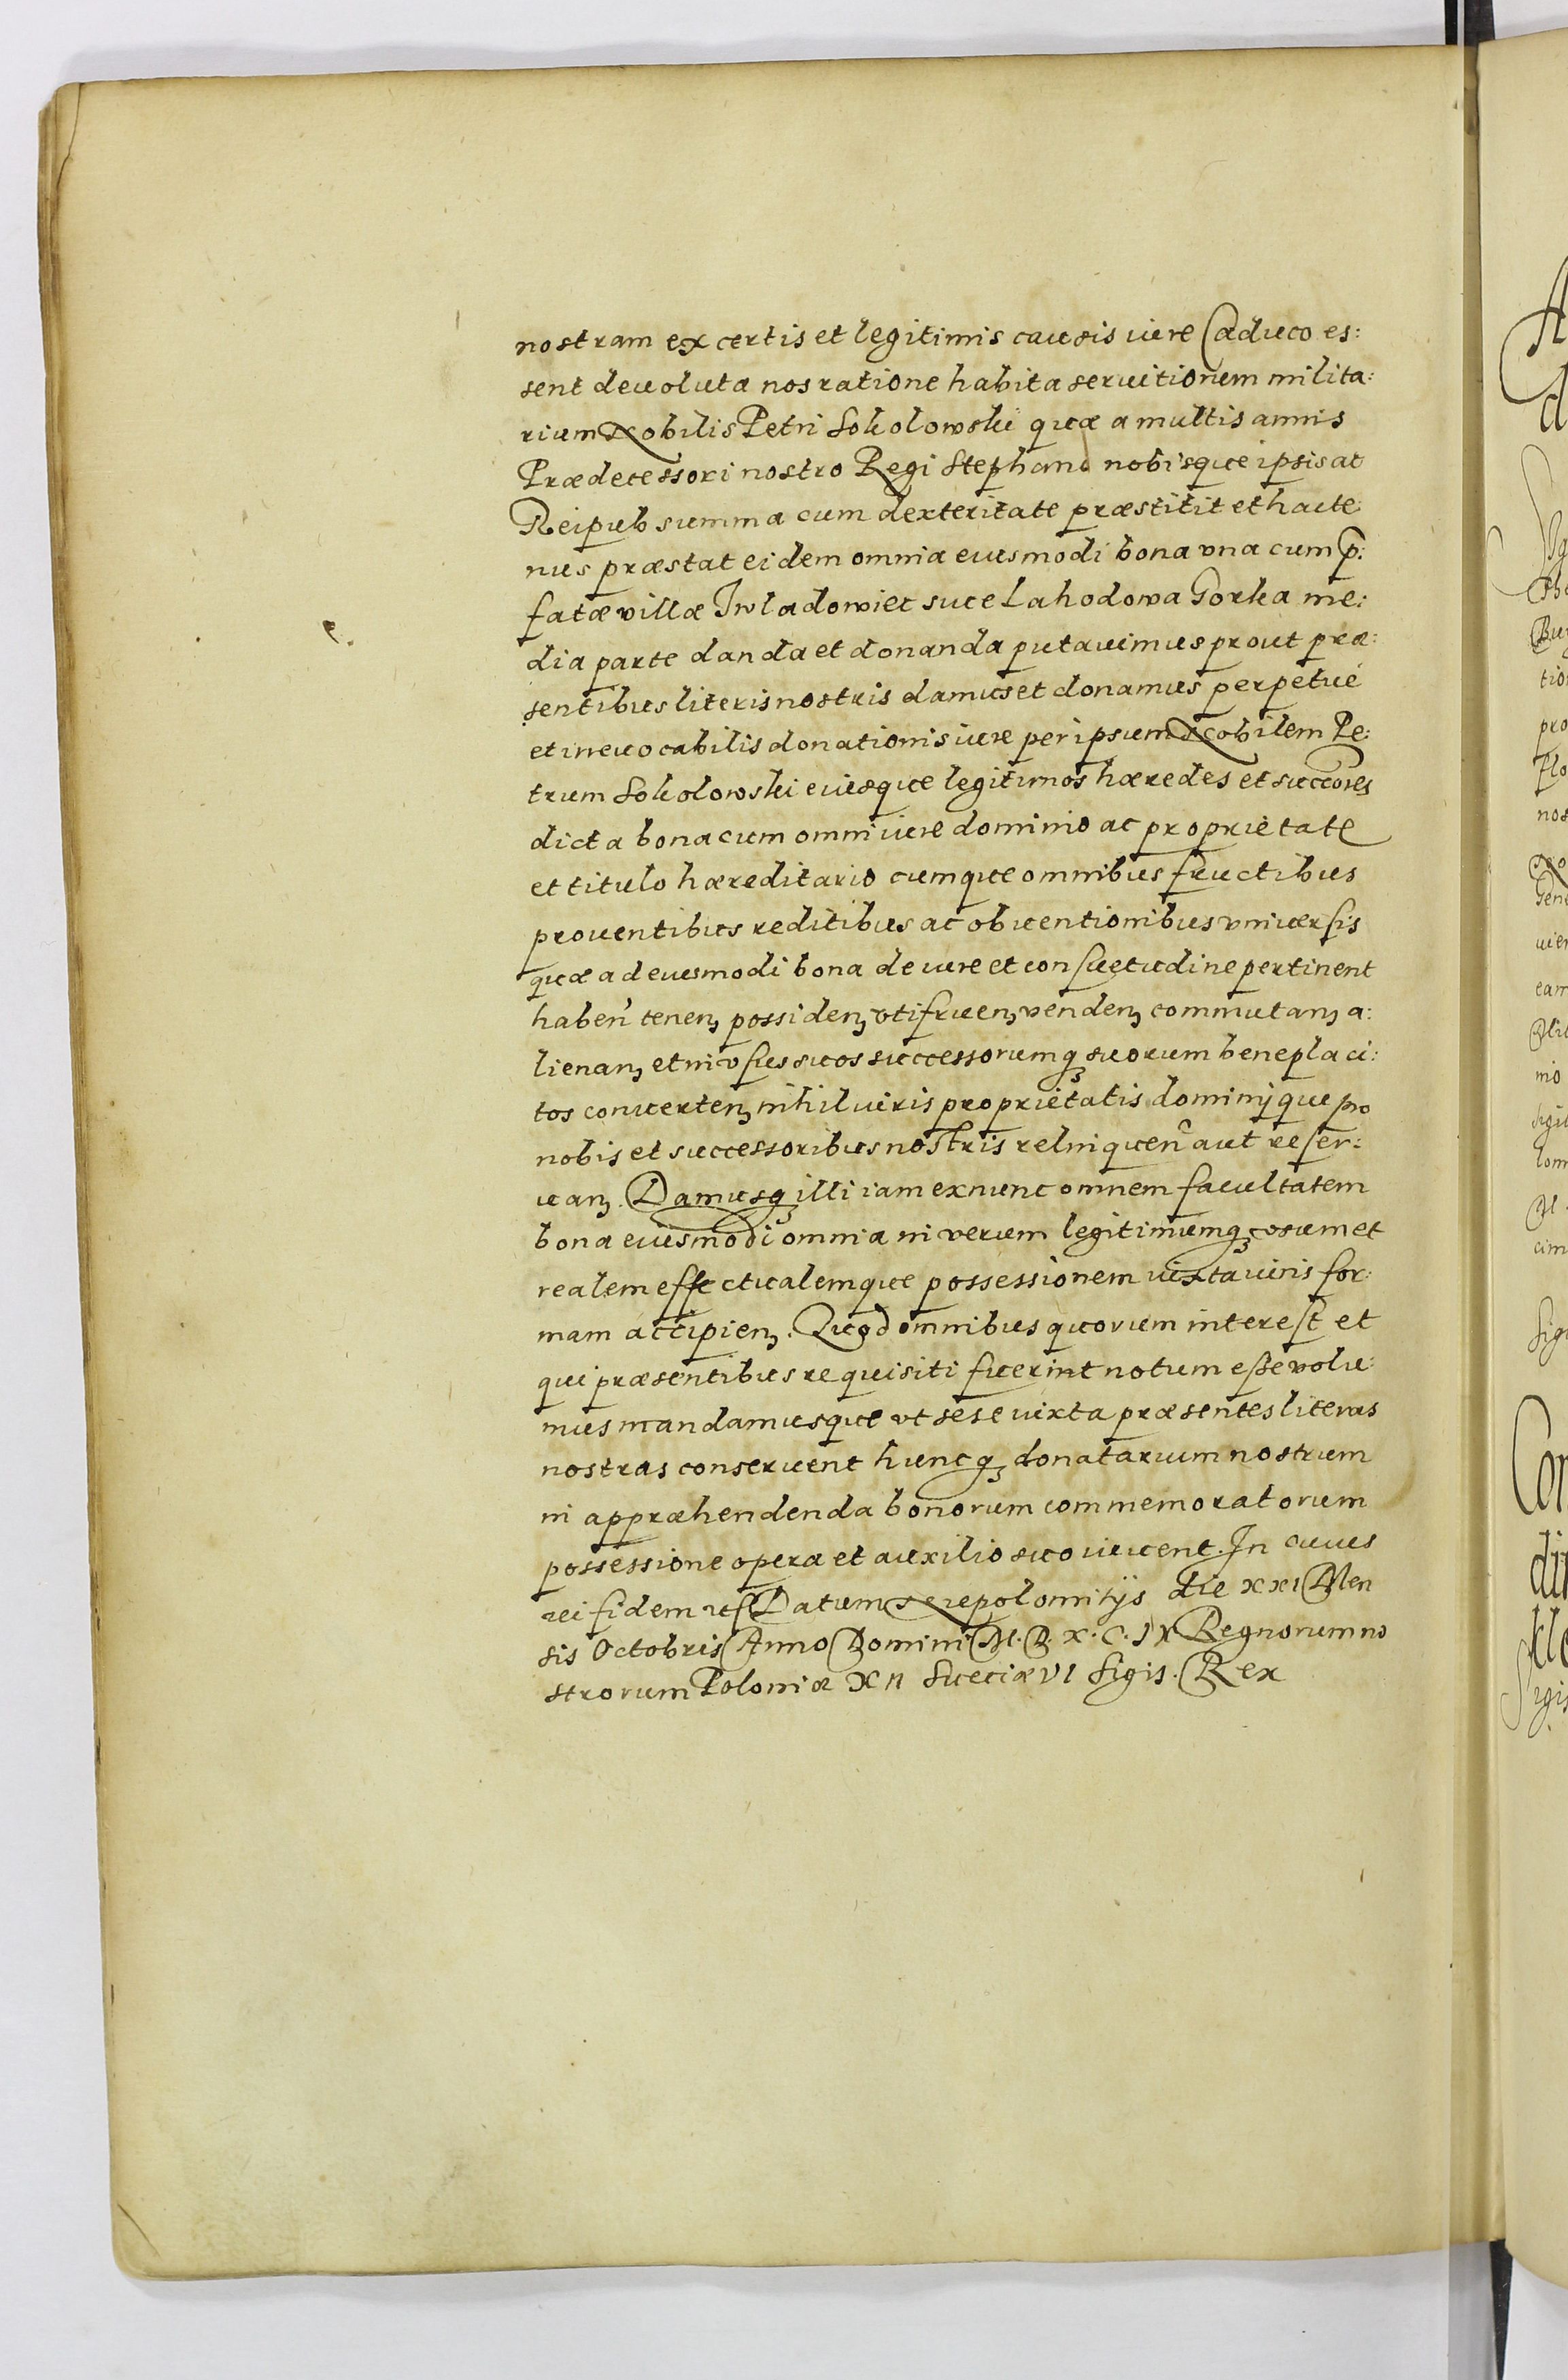 nostram ex certis et legitimis causis iure Caduco es:
sent deuoluta nos ratione habita seruitiorum milita:
rium Nobilis Petri Sokolowski quæ a multis annis
Prædecessori nostro Regi Stephano nobisque ipsis ac
Reipub summa cum dexteritate præstitit et hacte:
nus præstat eidem omnia eiusmodi bona vna cum p:
fatæ villæ Iwladowiec siue Lahodowa Gorka me:
dia parte danda et donanda putauimus prout præ:
sentibus literis nostris damus et donamus perpetue
et irreuocabilis donationis iure per ipsum Nobilem Pe:
trum Sokolowski eiusque legitimos hæredes et succẽores
dicta bona cum omni iure dominio ac proprietate
et titulo hæreditario cumque omnibus fructibus
prouentibus reditibus ac obuentionibus vniuersis
quæ ad eiusmodi bona de iure et consuetudine pertinent
habeñ tenenꝫ possidenꝫ vtifruenꝫ vendenꝫ commutanꝫ a:
lienanꝫ et in vsus suos successorumqꝫ suorum beneplaci:
tos conuertenꝫ nihil iuris proprietatis dominijque pro
nobis et successoribus nostris relinqueñ aut reser:
uanꝫ. Damusqꝫ illi iam ex nunc omnem facultatem
bona eiusmodi omnia in verum legitimumqꝫ vsum et
realem effectualemque possessionem iuxta iuris for:
mam accipienꝫ. Quod omnibus quorum interest et
qui præsentibus requisiti fuerint notum esse volu:
mus mandamusque vt sese iuxta præsentes literas
nostras conseruent huncqꝫ donatarium nostrum
in appræhendenda bonorum commemoratorum
possessione opera et auxilio suo iuuent. In cuius
rei fidem etc Datum Nepolomitijs die XXI Men
sis Octobris Anno Domini M. D. X. C. IX Regnorum no
strorum Poloniæ XII Sueciæ VI Sigis. Rex